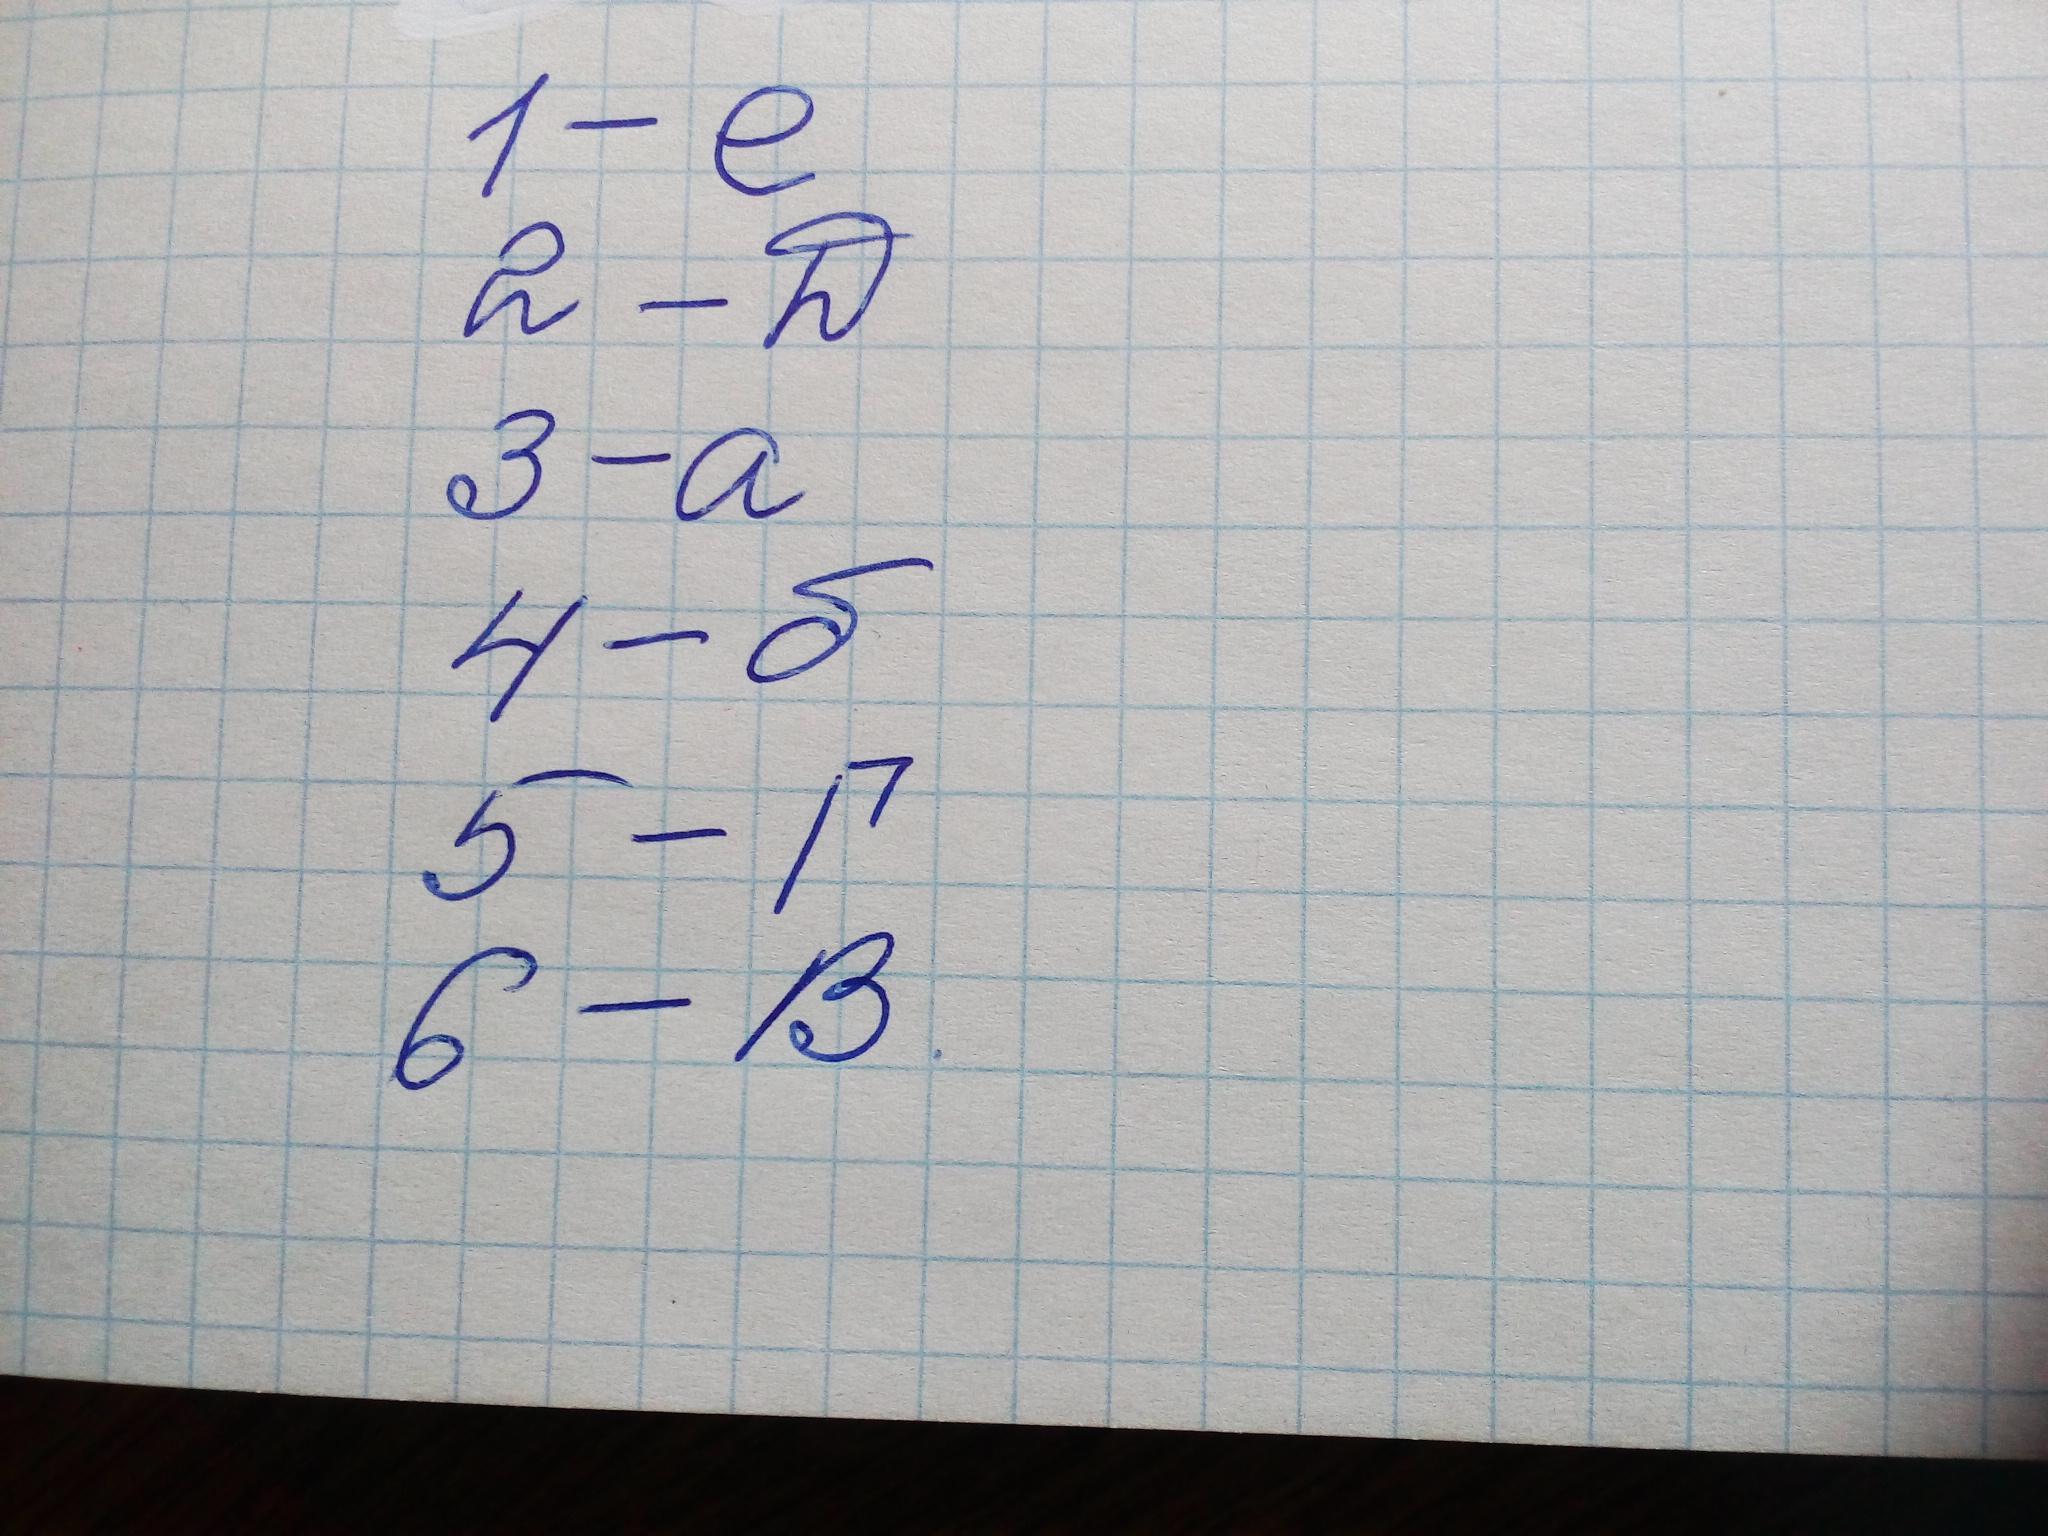 1 - е
2 - Д
3 - а
4 - б
5 - Г
6 - В.